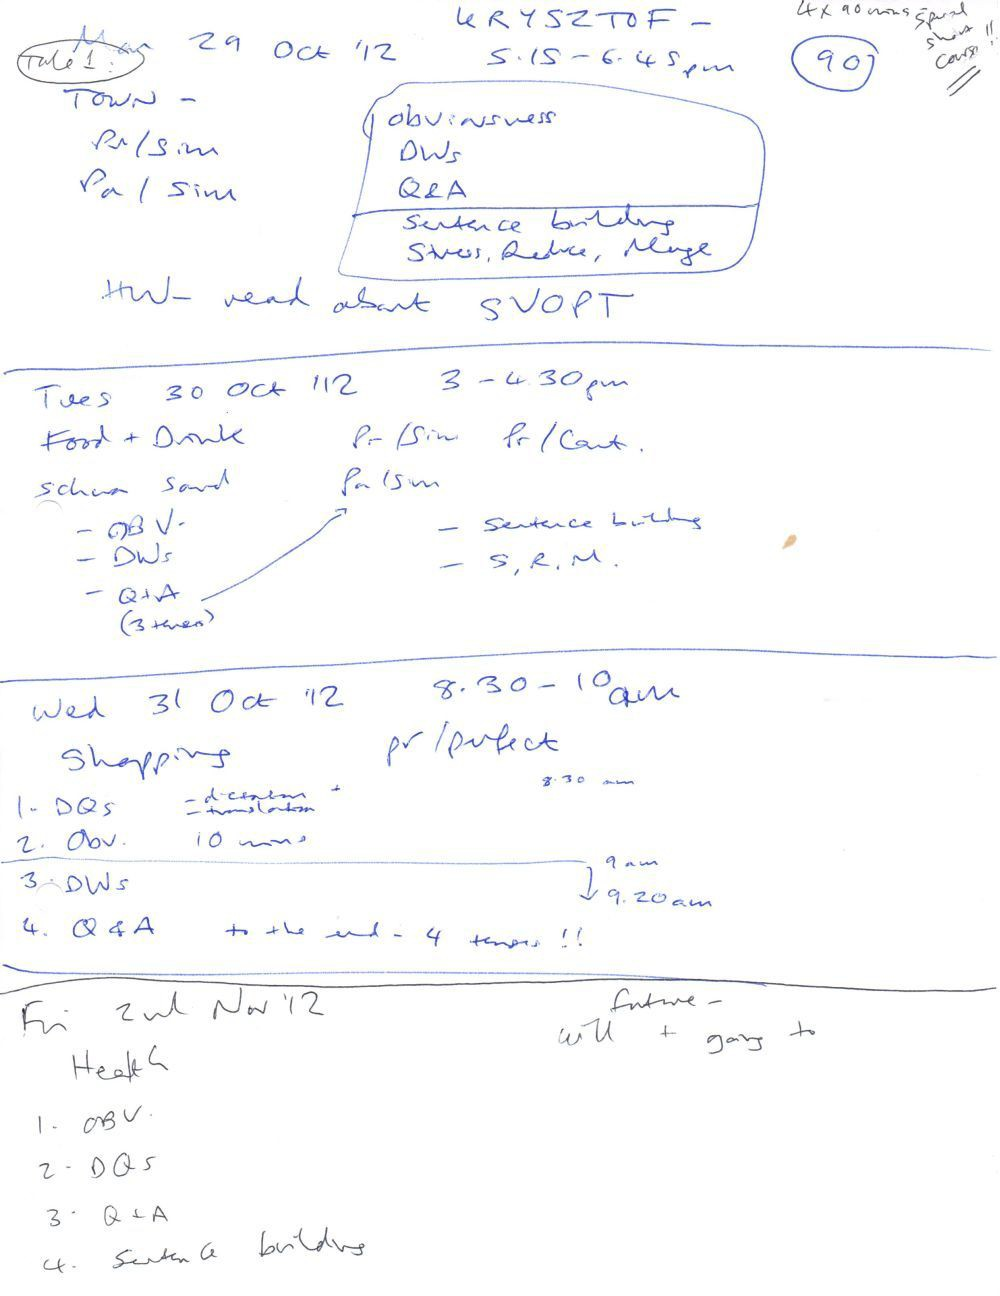 KRYSZTOF -
4 x 90 mins special
short !!
course
Mon 29 Oct '12
5.15 - 6.45pm
90
Take 1:
TOWN -
Pr/sim
Pa/sim
obviousness
DWs
Q&A
Sentence building
Stress, Reduce, Merge
HW- read about SVOPT
Tues 30 Oct '12 3 - 4.30pm
Food + Drink Pr/Sim Pr/Cont.
schwa sound Pa/sim
- OBV. - sentence building
- DWs - S, R, M.
- Q+A
(3 tenses)
Wed 31 Oct '12 8.30 - 10am
Shopping pr/perfect
8.30 am
1. DQs - dictation +
- translation
2. Obv. 10 mins
9 am
3. DWs 9.20am
4. Q & A to the end - 4 tenses !!
Fri 2nd Nov '12 future -
will + going to
Health
1. OBV.
2. DQs
3. Q+A
4. Sentence building